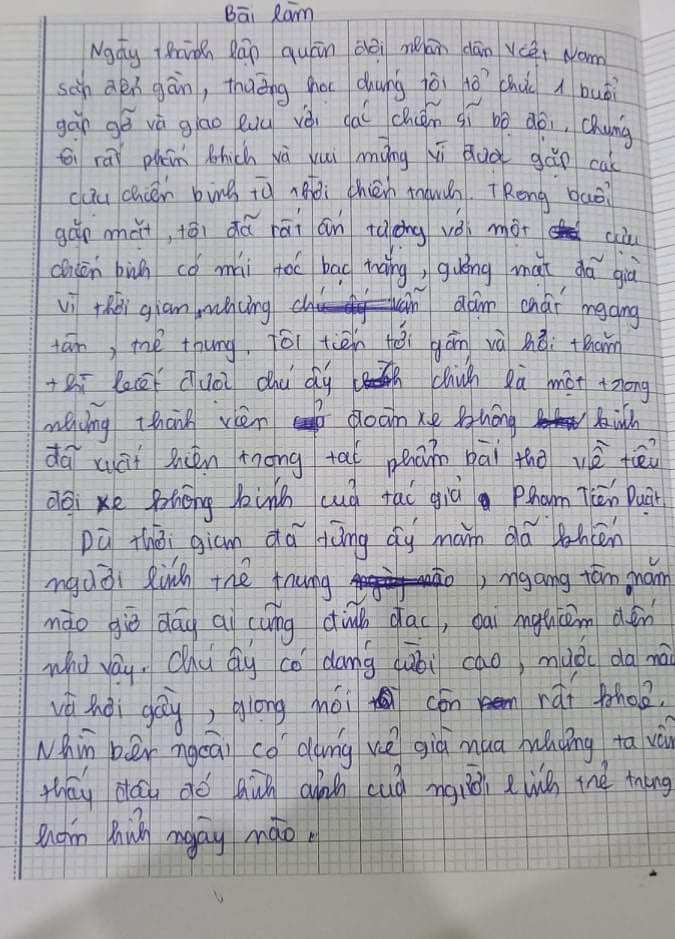 Bài làm
Ngày thành lập quân đội nhân dân Việt Nam
sắp đến gần, trường học chúng tôi tổ chức 1 buổi
gặp gỡ và giao lưu với các chiến sĩ bộ đội. Chúng
tôi rất phấn khích và vui mừng vì được gặp các
cựu chiến binh từ thời chiến tranh. Trong buổi
gặp mặt, tôi đã rất ấn tượng với một cựu
chiến binh có mái tóc bạc trắng, gương mặt đã già
vì thời gian nhưng vẫn đậm chất ngang
tàn, trẻ trung. Tôi tiến tới gần và hỏi thăm
thì biết được chú ấy chính là một trong
những thành viên đoàn xe không kính
đã xuất hiện trong tác phẩm bài thơ về tiểu
đội xe không kính của tác giả Phạm Tiến Duật.
Dù thời gian đã từng ấy năm đã khiến
người lính trẻ trung, ngang tàn năm
nào giờ đây ai cũng đĩnh đạc, oai nghiêm đến
như vậy. Chú ấy có dáng người cao, nước da nâu
và hơi gầy, giọng nói còn rất khoẻ.
Nhìn bên ngoài có dáng vẻ già nua nhưng ta vẫn
thấy đâu đó hình ảnh của người lính trẻ trung
hóm hỉnh ngày nào.